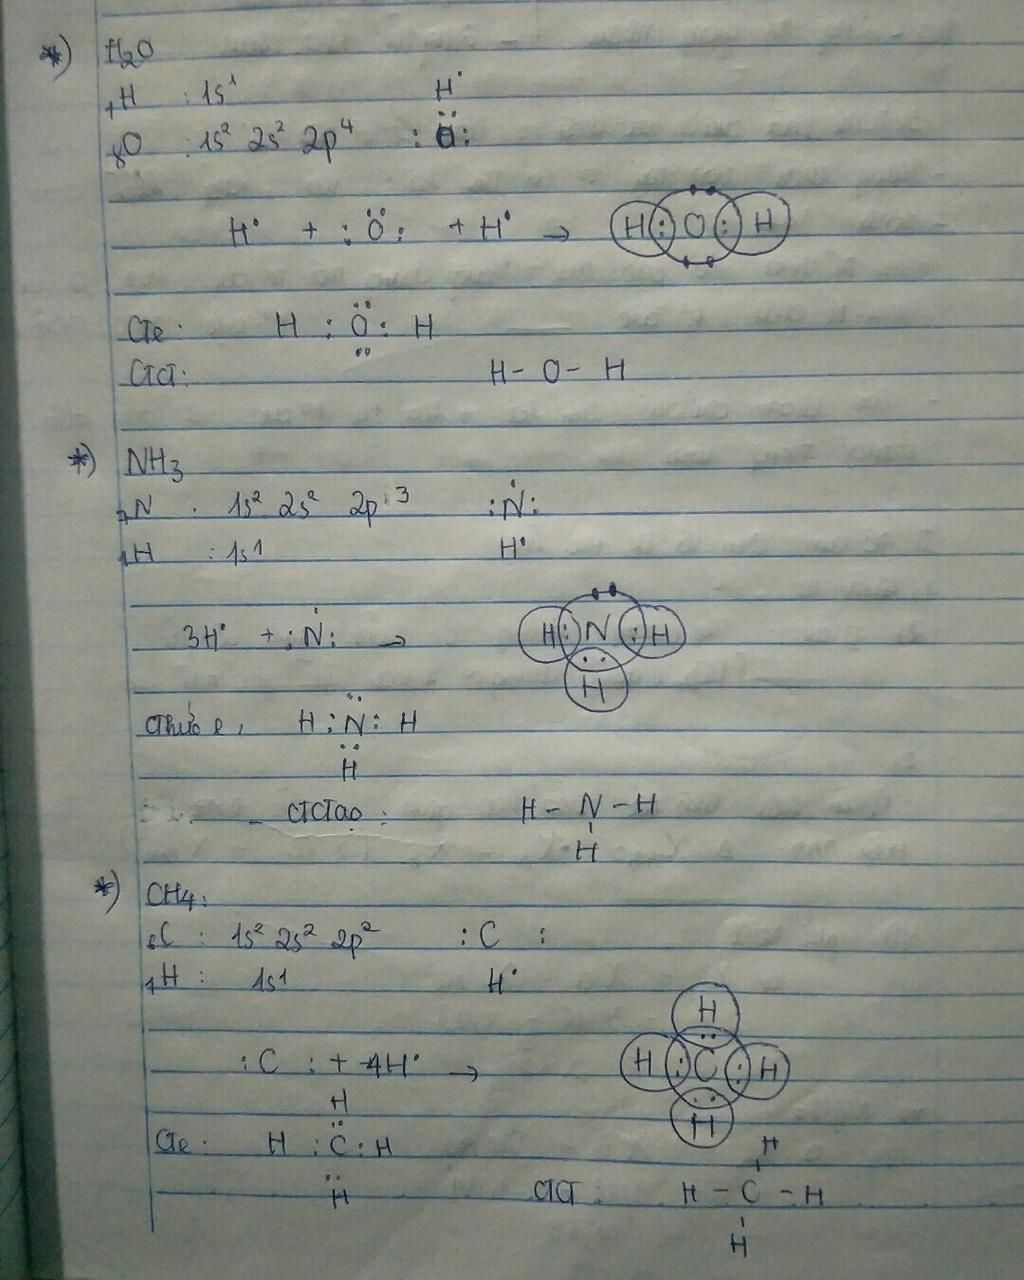 *) H₂O
₁H : 1s¹ H•
₈O : 1s² 2s² 2p⁴ :Ö:
H• + :Ö: + H• → H : O : H
CTe: H : Ö : H
CTCT: H - O - H
*) NH₃
₇N : 1s² 2s² 2p³ :Ṅ:
₁H : 1s¹ H•
3H• + :Ṅ: → H : N : H
H
CThức e: H : N̈ : H
H
CTCTạo : H - N - H
H
*) CH₄:
₆C : 1s² 2s² 2p² : C :
₁H : 1s¹ H•
H
: C : + 4H• → H : C : H
H
H
CTe: H : C : H
H
H
CTCT : H - C - H
H